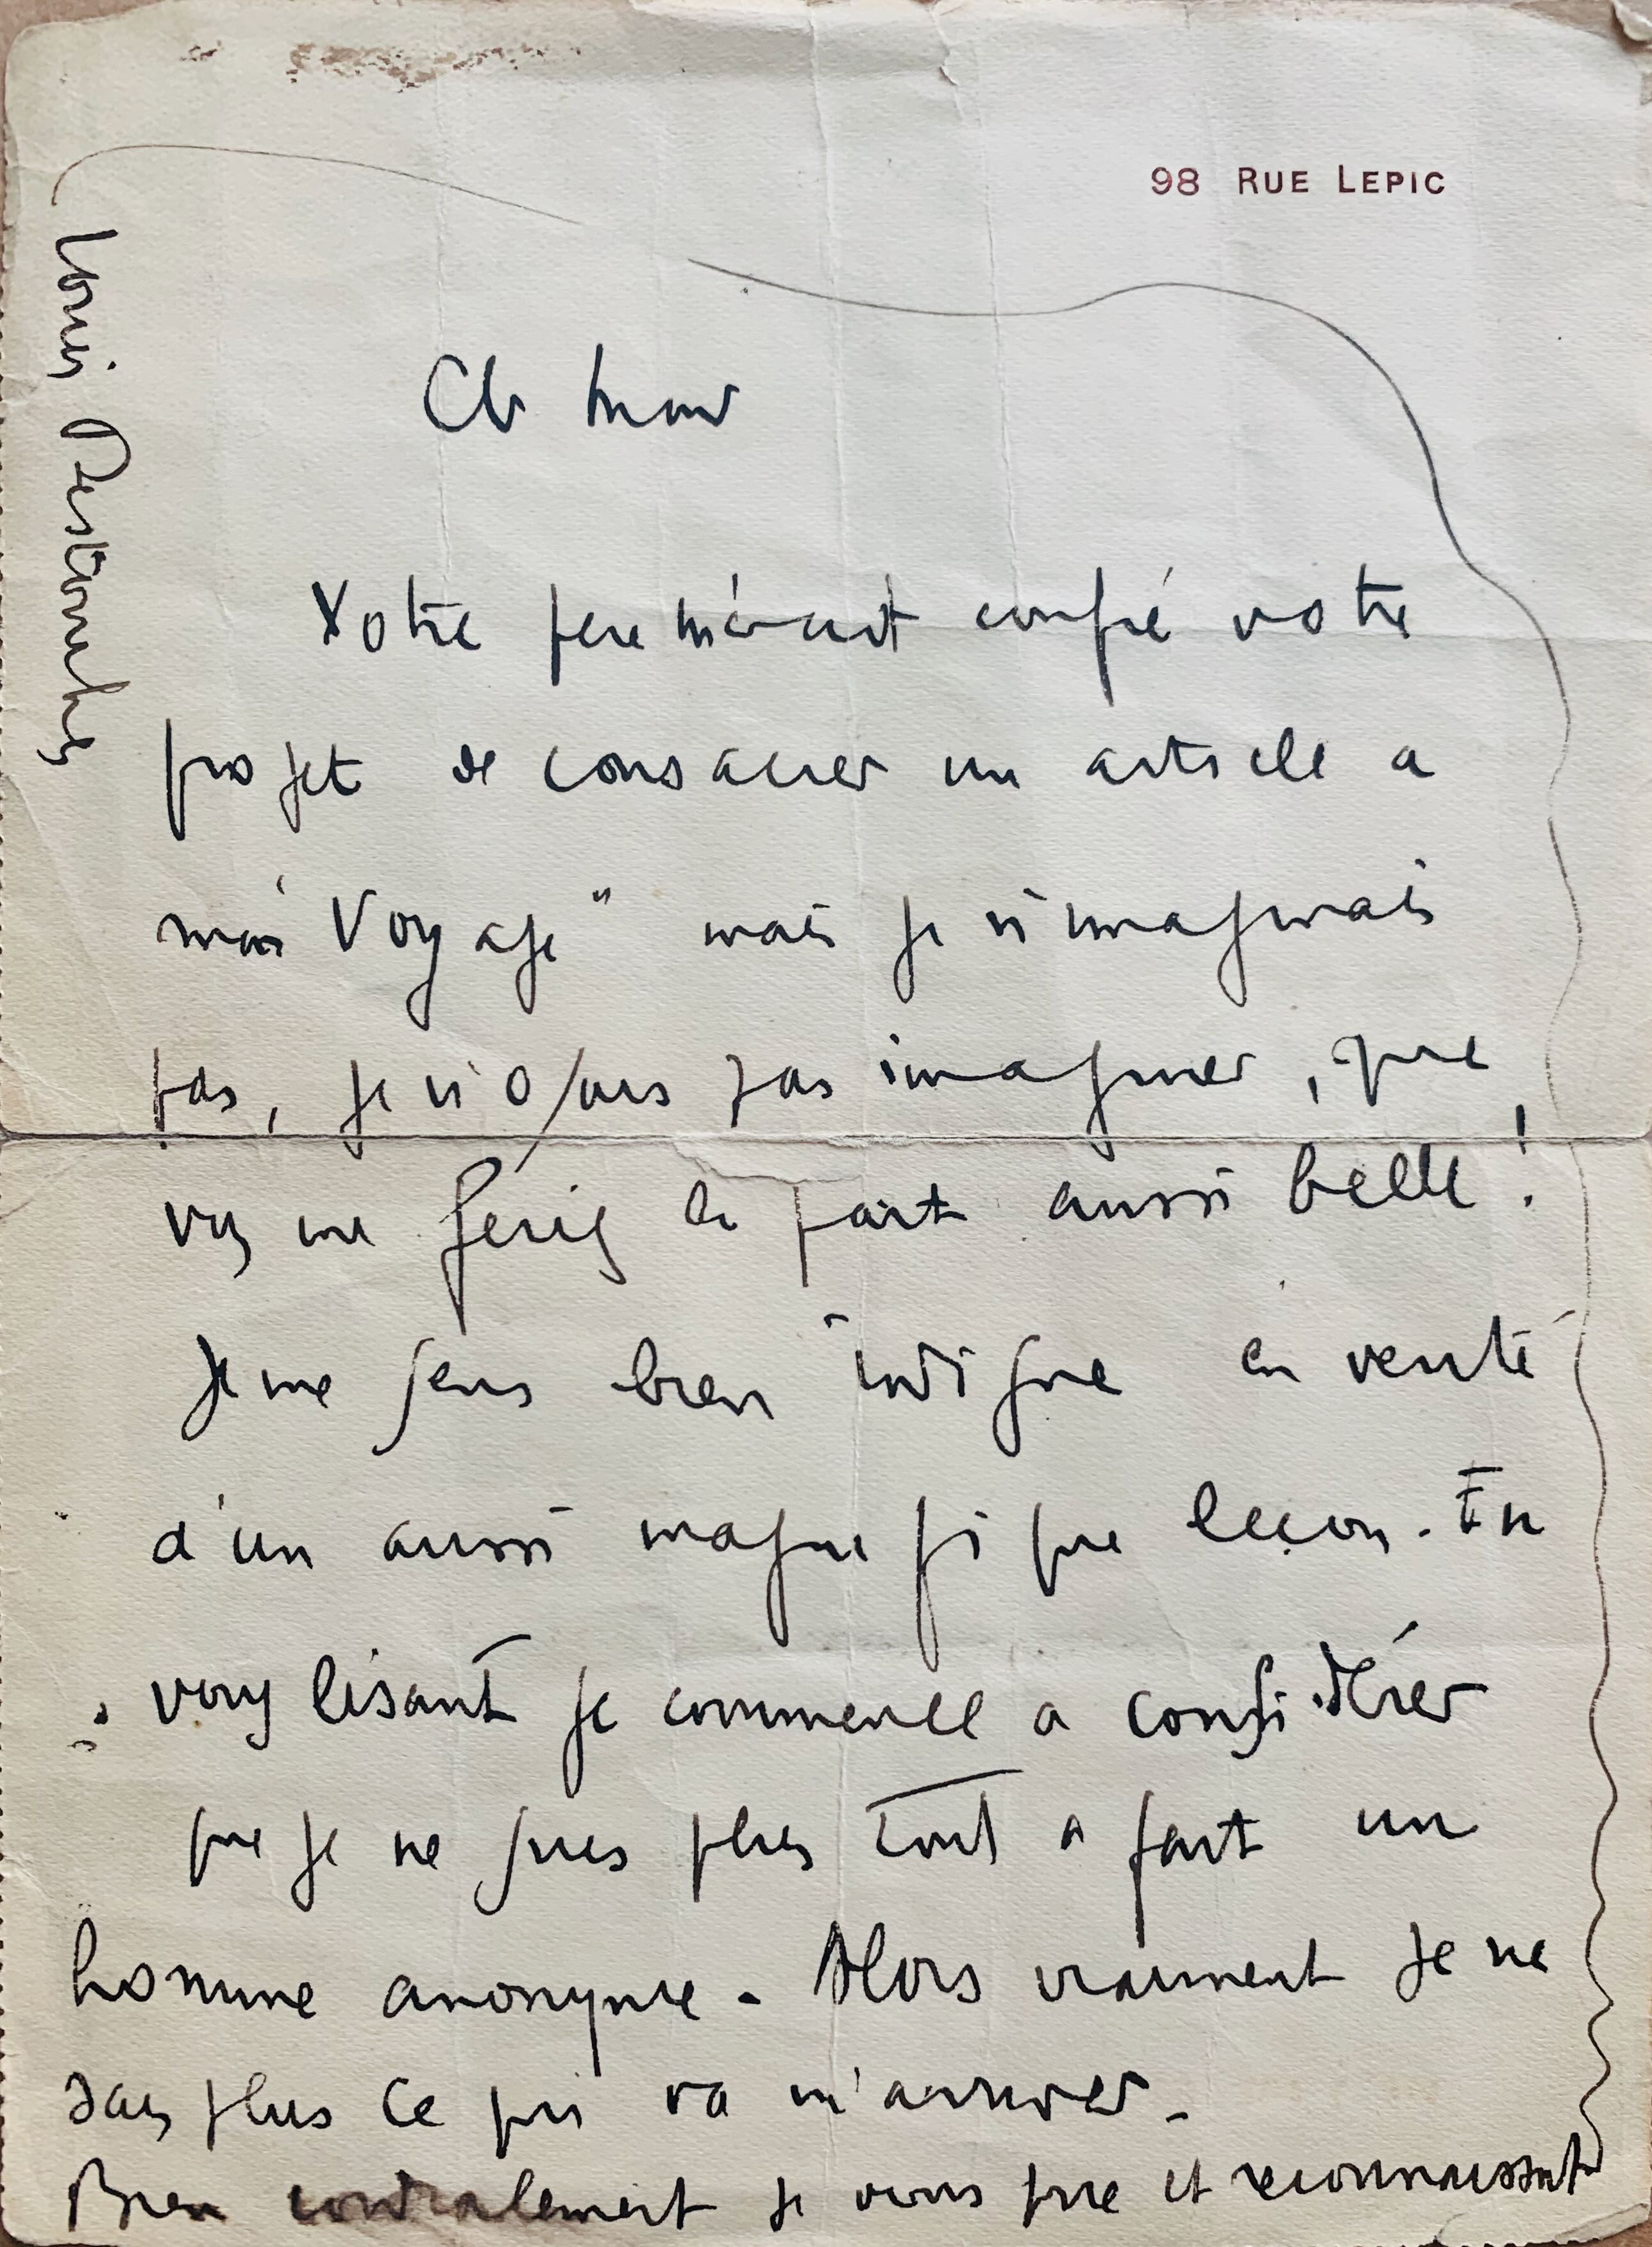 98 RUE LEPIC
Votre pere m'avait confié votre
projet de consacrer un article a
mon "Voyage" mais je n'imaginais
pas, je n'osais pas imaginer, que
vous me feriez la part aussi belle !
Je me sens bien indigne en verité
d'un aussi magnifique leçon. En
vous lisant je commence a considérer
que je ne suis plus tout a fait un
homme anonyme. Alors vraiment je ne
sais plus ce qui va m'arriver.
Bien cordialement je vous prie et reconnaissant
Louis Destouches